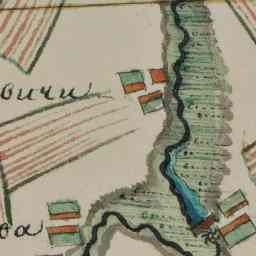 вичи
ва